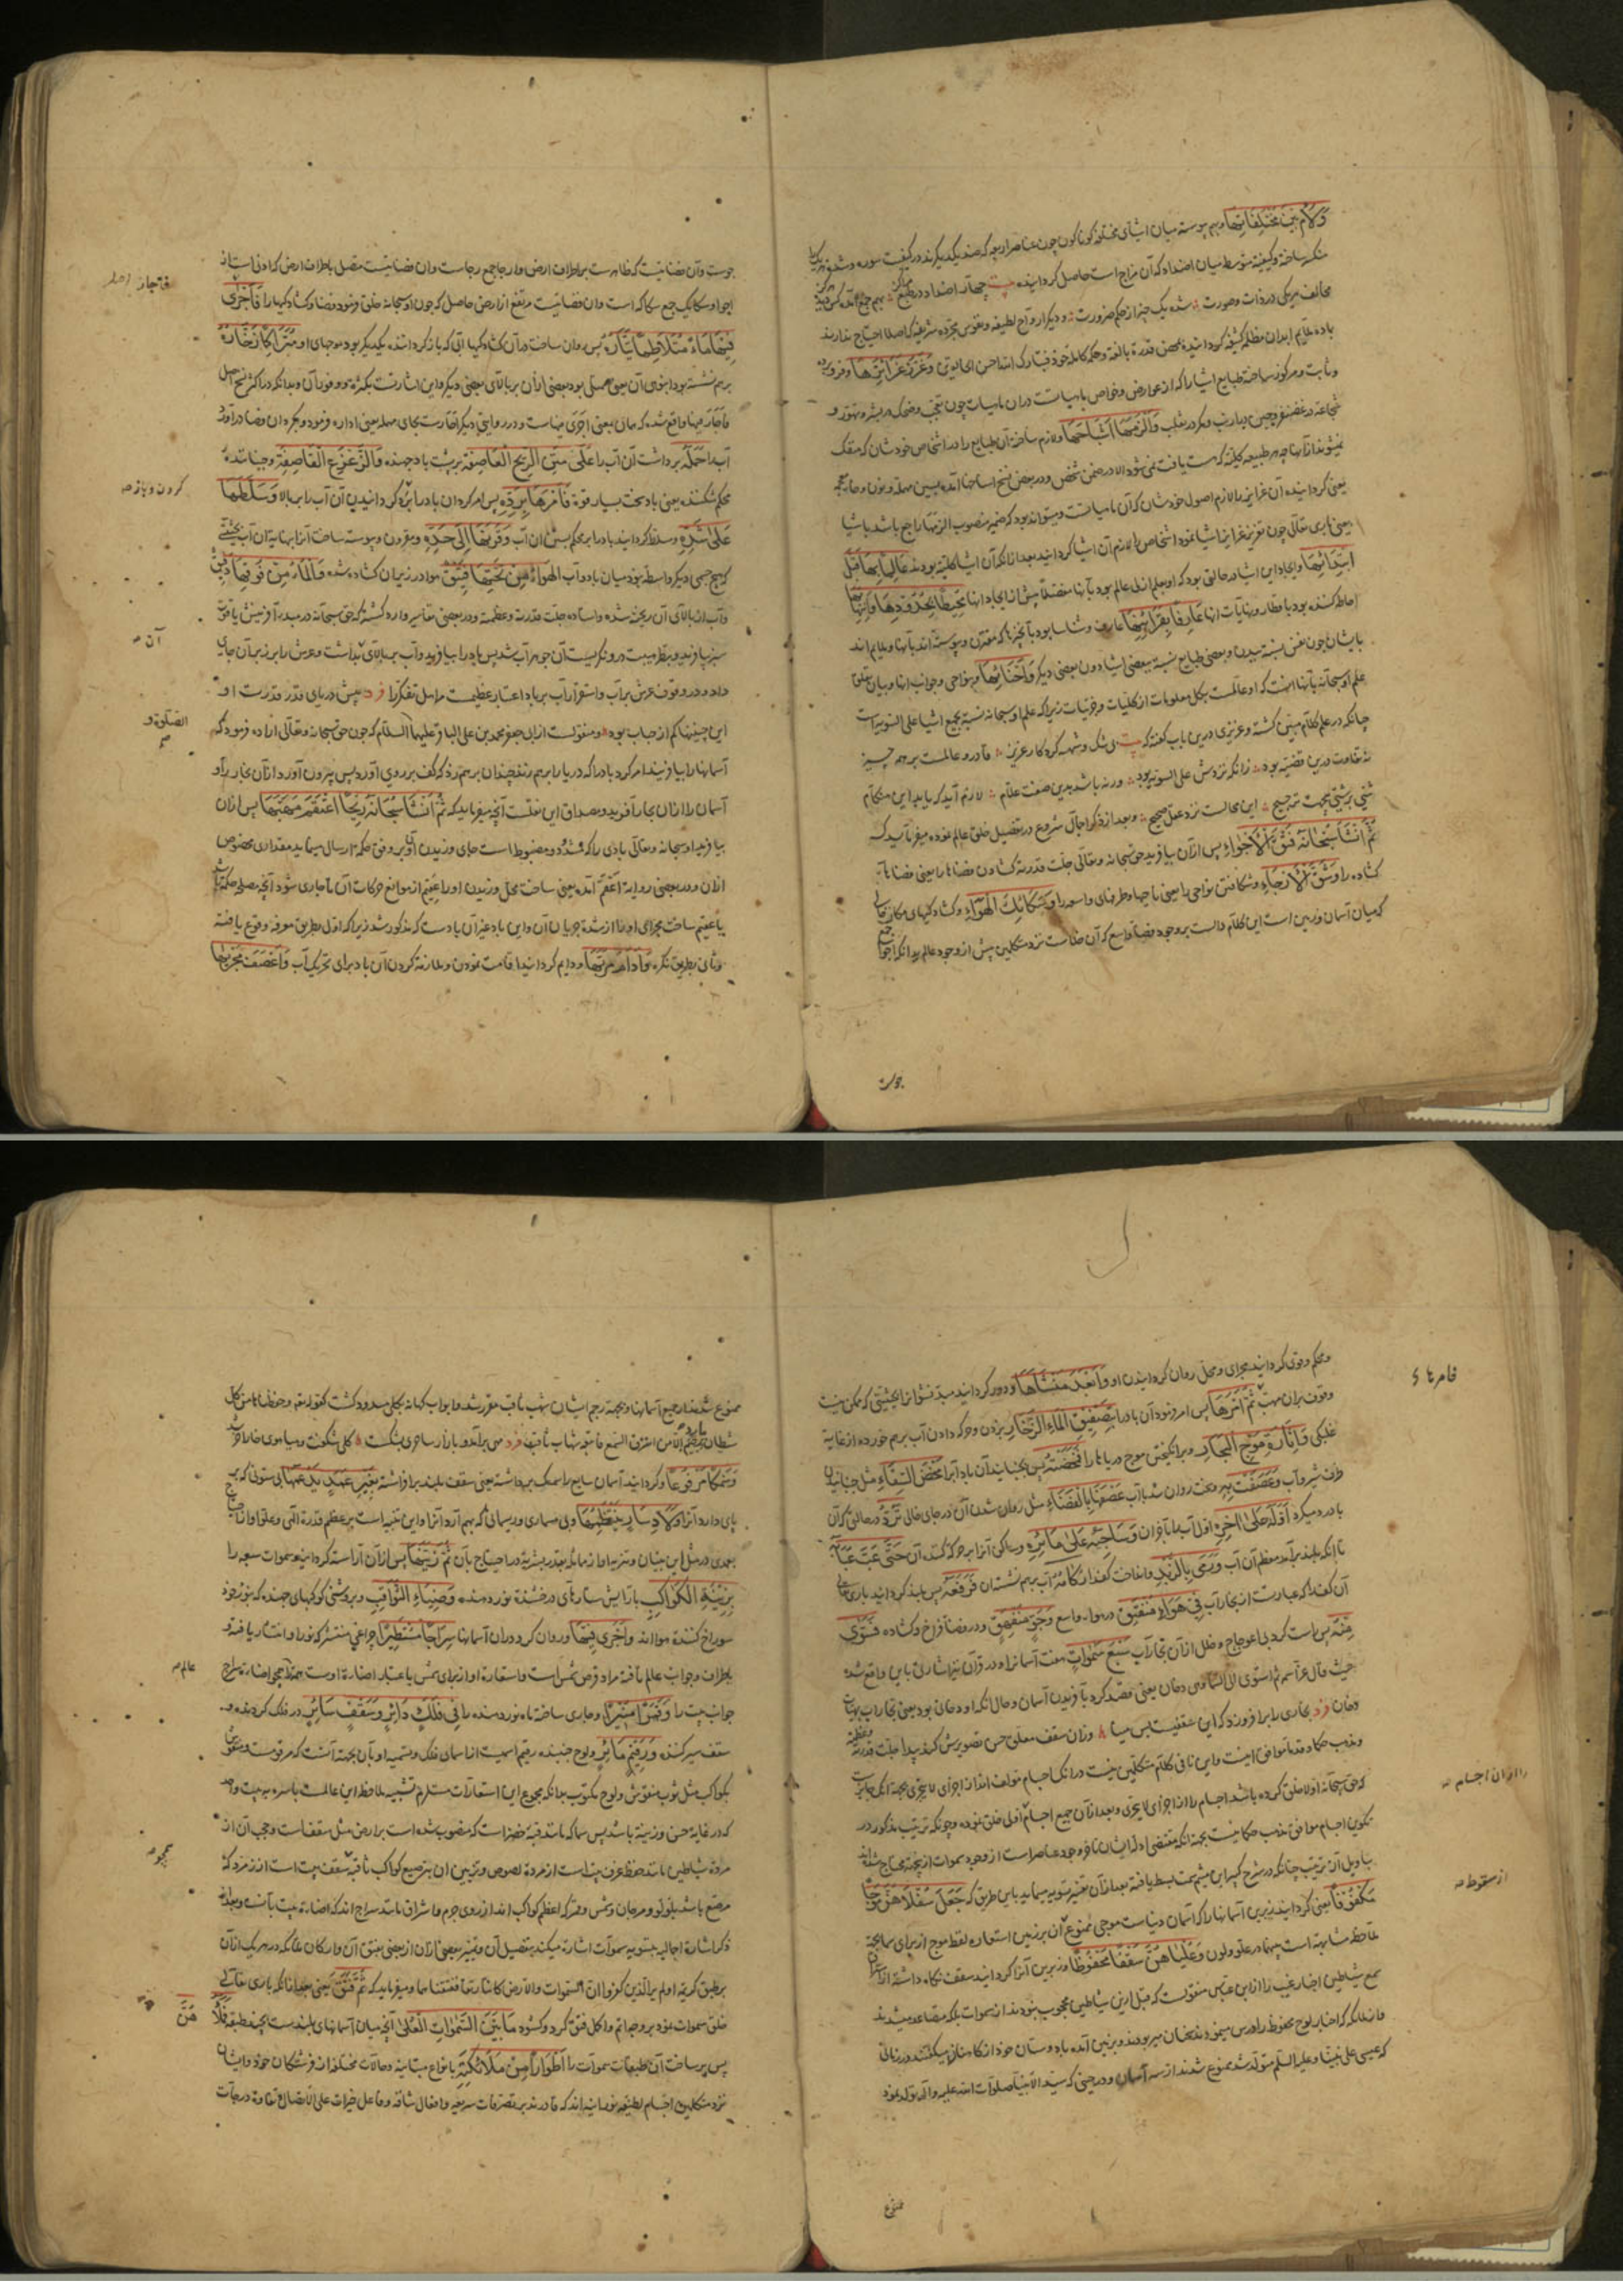 وَلَاءَمَ بَيْنَ مُخْتَلِفَاتِهَا وبهم پیوسته میان اشیای مختلفه گوناگون چون عناصر اربعه که ضد یکدیگرند در کیفیت
متکیفه ساخته و کیفیته متوسطه میان اضداد که آن مزاج است حاصل گردانیده چهار اضداد در طبایع
مخالف هر یکی در ذات وصورت شده یک چیز از حکم ضرورت و دیگر ارواح لطیفه و نفوس مجرده شریفه که اصلا احتیاج ندارند
بماده بمحض قدرة بالغه وحکمة کامله خود فتبارک الله احسن الخالقین وَغَرَّزَ غَرَائِزَهَا
وثابت ومرکوز ساخته طبایع اشیا را که از عوارض وخواص ماهیاتست در آن ماهیات چون تعجب وضحک
شجاعة وَأَلْزَمَهَا أَشْبَاحَهَا ولازم ساخته آن طبایع را در اشخاص خودشان که منفک
نمیشوند از آنها چه هر طبیعه کلیه که هست یافت نمی شود الا در ضمن شخص ودر بعض نسخ
یعنی گردانیده آن غرایز را لازم اصول خودشان که آن ماهیاتست ومیتواند بود که ضمیر منصوب الزمها راجع باشد باشیا
یعنی باری تعالی چون غرایز اشیا نمود اشخاص را لازم آن اشیا گردانید بعد از آنکه آن اشیا کلیه بودند عَالِمًا بِهَا قَبْلَ
ابْتِدَائِهَا وایجاد این اشیا در حالتی بود که او بعلم ازلی عالم بود بآنها مفصلا پیش از ایجاد آنها مُحِيطًا بِحُدُودِهَا وَانْتِهَائِهَا
احاطه کننده بود باقطار ونهایات آنها عَارِفًا بِقَرَائِنِهَا عارف وشناسا بود بآنچه که مقترن وپیوسته اند بآنها
بایشان چون نفس نسبة ببدن وبعضی طبایع نسبة ببعضی اشیا دون بعضی دیگر وَأَحْنَائِهَا ونواحی وجوانب آنها
علم او سبحانه بآنها آنست که او عالمست بکل معلومات از کلیات وجزئیات زیرا که علم او سبحانه نسبة بجمیع اشیا علی السویه است
چنانکه در علم کلام مبین گشته وعزیزی درین باب گفته که بی شک وشبهه کردگار عزیز قادر وعالمست بر همه چیز
نه تفاوت درین قضیه بود زانکه نزدش علی السویه بود ورنه باشد بدین صفت علام لازم آید که باید این هنگام
این محالست نزد عقل صحیح وبعد از ذکر اجمال شروع در تفصیل خلق عالم نموده میفرماید که
ثُمَّ أَنْشَأَ سُبْحَانَهُ فَتْقَ الْأَجْوَاءِ پس از آن بیافرید حق سبحانه وتعالی جلت قدرته گشادن فضاها را یعنی فضاهای
گشاده را وَشَقَّ الْأَرْجَاءِ وشکافتن نواحی را یعنی ناحیها وطرفهای واسعه را وَسَكَائِكَ الْهَوَاءِ وگشادگیهای مکان خالی
که میان آسمان وزمین است این کلام دالست بر وجود فضای واسع که آن خلاست نزد متکلمین پیش از وجود عالم بدانکه اجواء جمع
جواست
جوست وآن فضائیست که ظاهرست بر اطراف ارض وارجا جمع رجاست وآن فضائیست متصل باطراف ارض
اجوا وسکایک جمع سکاکه است وآن فضائیست مرتفع از ارض حاصل که چون او سبحانه خلق فرمود فضا وگشادگیها را فَأَجْرَى
فِيهَا مَاءً مُتَلَاطِمًا تَيَّارُهُ پس روان ساخت در آن گشادگیها آبی که باز گرداننده یکدیگر بود موجهای او مُتَرَاكِمًا زَخَّارُهُ
برهم نشسته بود انبوهی آن یعنی ممتلی بود بعضی از آن بر بالای بعضی دیگر واین اشارتست بکثرة ووفور آن وبدانکه در اکثر نسخ
فاجاز فیها واقع شده که بمعنی اجری فیهاست ودر روایتی دیگر بحای مهمله یعنی اداره فرمود
آب را حَمَلَهُ برداشت آن آب را عَلَى مَتْنِ الرِّيحِ الْعَاصِفَةِ بر پشت باد جهنده وَالزَّعْزَعِ الْقَاصِفَةِ وجنباننده
محکم شکننده یعنی بادی سخت بسیار قوة فَأَمَرَهَا بِرَدِّهِ پس امر کرد آن باد را برد گردانیدن آن آب را ببالا وَسَلَّطَهَا
عَلَى شَدِّهِ ومسلط گردانید باد را بر محکم بستن آن آب وَقَرَنَهَا إِلَى حَدِّهِ ومقرون وپیوسته ساخت آنرا بنهایة آن آب بحیثیتی
که هیچ جسمی دیگر واسطه نبود میان باد وآب الْهَوَاءُ مِنْ تَحْتِهَا فَتِيقٌ هوا در زیر آن گشاده شده وَالْمَاءُ مِنْ فَوْقِهَا دَفِيقٌ
وآب از بالای آن ریخته شده وایستاده جلت قدرته وعظمته ودر بعضی تفاسیر وارد گشته که حق سبحانه در مبدء آفرینش یاقوتی
سبز بیافرید وبنظر هیبت درو نگریست آن جوهر آب شد وپس باد را بیافرید وآب بر بالای بداشت وعرش را بر زبر آن جای
داد ودر وقوف عرش بر آب واستقرار آب بر باد اعتبار عظیمست مر اهل تفکر را فرد پیش دریای قدر قدرت او
این چنینها کم از حباب بود ومنقولست از ابی جعفر محمد بن علی الباقر علیهما السلام که چون حق سبحانه وتعالی اراده فرمود که
آسمانها را بیافریند امر کرد باد را که دریا را برهم زند چندان برهم زد که کف بر روی آورد پس بیرون آورد از آن بخار را و
آسمان را از آن بخار آفرید ومصداق این نقلست آنچه میفرماید که ثُمَّ أَنْشَأَ سُبْحَانَهُ رِيحًا اعْتَقَمَ مَهَبَّهَا پس از آن
بیافرید او سبحانه وتعالی بادی را که مضبوط است جای وزیدن آن بر وفق حکمة ارسال مینماید بمقداری مخصوص
از آن ودر بعضی روایة اَعْقَمَ آمده یعنی ساخت محل وزیدن او را عقیم از موانع حرکات آن تا جاری شود
یا عقیم ساخت مجرای او را از شدة جریان آن واین باد غیر آن بادست که مذکور شد زیرا که اول بطریق معرفه وقوع یافته
وثانی بطریق نکره وَأَدَامَ مُرَبَّهَا ودایم گردانید اقامت نمودن وملازمة کردن آن باد برای تحریک آب وَأَعْصَفَ مَجْرَاهَا
آن
الصلوة و
ومحکم وقوی گردانید مجرای ومحل روان گردانیدن او وَأَبْعَدَ مَنْشَأَهَا ودور گردانید مبدء نشو آنرا بحیثیتی که ممکن نیست
وقوف بر آن مهب ثُمَّ أَمَرَهَا پس امر فرمود آن باد را بِتَصْفِيقِ الْمَاءِ الزَّخَّارِ بزدن وحرکه دادن آب برهم خورده از غایة
غلبگی وَإِثَارَةِ مَوْجِ الْبِحَارِ وبرانگیختن موج دریاها را فَمَخَضَتْهُ پس بجنبانید آن باد آب را مَخْضَ السِّقَاءِ مثل جنبانیدن
ظرف شیر وآب وَعَصَفَتْ بِهِ وسخت روان شد بآب عَصْفَهَا بِالْفَضَاءِ مثل روان شدن آن در جای خالی تَرُدُّ در حالتی که آن
باد رد میکرد أَوَّلَهُ عَلَى آخِرِهِ اول آب را بآخر آن وَسَاجِيَهُ عَلَى مَائِرِهِ وساکن آنرا بر حرکه کننده آن حَتَّى عَبَّ عُبَابُهُ
تا آنکه بلند برآمد معظم آن آب وَرَمَى بِالزَّبَدِ وانداخت کف را رُكَامُهُ آب برهم نشسته آن فَرَفَعَهُ پس بلند گردانید باری تعالی
آن کف را که عبارتست از بخار آب فِي هَوَاءٍ مُنْفَتِقٍ در هوای واسع وَجَوٍّ مُنْفَهِقٍ ودر فضای فراخ وگشاده فَسَوَّى
مِنْهُ پس راست کرد بی اعوجاج وخلل از آن بخار آب سَبْعَ سَمَوَاتٍ هفت آسمانرا ودر قرآن نیز اشارتی باین واقع شده
حیث قال عز اسمه ثم استوی الی السماء وهی دخان یعنی قصد کرد بآفریدن آسمان وحال آنکه او دخان بود یعنی بخار آب بهیات
دخان فرد بخاری را برافرازد که این سقفیست بس میبا وزان سقف معلق حسن تصویرش کند پیدا جلت قدرته وعظمته
ومذهب حکما موافق اینست واین نافی کلام متکلمین نیست در آنکه اجسام مؤلف اند از اجزای لا یتجزی بجهة آنکه جایزست
که حق سبحانه اولا خلق کرده باشد اجسام را از اجزای لا یتجزی وبعد از آن جمیع اجسام از اولی خلق نموده وچونکه ترتیب مذکور در
تکوین اجسام موافق مذهب حکما نیست بجهة آنکه مقتضی ادله ایشان تاخر وجود عناصر است از وجود سموات ازینجهة محتاج شده اند
بتاویل آن ترتیب چنانکه در شرح کبیر ابن میثم سمت بسط یافته بعد از آن تفسیر تسویه مینماید باین طریق که جَعَلَ سُفْلَاهُنَّ مَوْجًا
مَكْفُوفًا یعنی گردانید زیرین آسمانها را که آسمان دنیاست موجی ممنوع از آن بر زمین استعاره لفظ موج از برای سما بجهة
ملاحظه مشابهة است بینهما در علو ولون وَعُلْيَاهُنَّ سَقْفًا مَحْفُوظًا وزبرین آنرا گردانید سقف نگاه داشته از استراق
سمع شیاطین اخبار غیب را از ابن عباس منقولست که قبل ازین شیاطین محجوب نبودند از سموات بلکه متصاعد میشدند
واز ملائکه که اخبار لوح محفوظ را درس مینمودند سخنان میربودند وبزمین آمده بادوستان خود از کاهنان میگفتند در زمانی
که عیسی علی نبینا وعلیه السلام متولد شد ممنوع شدند از سه آسمان ودر حینی که سید الانبیا صلوات الله علیه وآله تولد نمود
ممنوع
را از آن اجسام
از سقوط
ممنوع شدند از جمیع آسمانها وبجهة رجم ایشان شهب ثاقب مقرر شد وابواب کهانه بکلی مسدود گشت کقوله تعالی وحفظناها من کل
شیطان رجیم الا من استرق السمع فاتبعه شهاب ثاقب
وَسَمْكًا مَرْفُوعًا وگردانید آسمان سابع را سمک برداشته یعنی سقف بلند برافراشته بِغَيْرِ عَمَدٍ يَدْعَمُهَا بی ستونی که بر
پای دارد آنرا وَلَا دِسَارٍ يَنْظِمُهَا وبی مسماری وریسمانی که بهم آرد آنرا واین تنبیه است بر عظم قدرة الهی
بعمدی در مثل این بنیان وتنزیه او از مانند بقدر بشریة در احتیاج بآن ثُمَّ زَيَّنَهَا پس از آن آراسته گردانید سموات سبعه را
بِزِينَةِ الْكَوَاكِبِ بآرایش ستارهای درفشنده نور دهنده وَضِيَاءِ الثَّوَاقِبِ وبروشنی کوکبهای جهنده که بنور خود
سوراخ کننده هوا اند وَأَجْرَى فِيهَا وروان کرد در آن آسمانها سِرَاجًا مُسْتَطِيرًا چراغی منتشر که نور او انتشار یافته
باطراف وجوانب عالم یافته مراد قرص شمس است واستعاره او از برای شمس باعتبار اضاءة اوست همچو اضاءة سراج
جوانب بیت را وَقَمَرًا مُنِيرًا وجاری ساخته ماه نور دهنده را فِي فَلَكٍ دَائِرٍ وَسَقْفٍ سَائِرٍ در فلک گردنده و
سقف سیر کننده وَرَقِيمٍ مَائِرٍ ولوح جنبنده رقیم اسمیست از اسمای فلک وتسمیه او بآن بجهة آنست که مرقوم ومنقوش
بکواکب مثل ثوب منقوش ولوح مکتوب بدانکه مجموع این استعارات مستلزم تشبیه ملاحظه این عالمست باسره ببیت واحد
که در غایة حسن وزینة باشد پس سما که مانند قبه خضراست که منصوب شده است بر ارض مثل سقف است
مرده شیاطین مانند حفظ غرف بیت است از مرده لصوص وتزیین آن بترصیع کواکب ثاقبه سقف بیت است از زمرد که
مرصع باشد بلؤلؤ ومرجان وشمس وقمر که اعظم کواکب اند از روی جرم واشراق مانند سراج اند که اضاءة بیت بآنست وبعد از
ذکر اشاره اجمالیه بتسویه سموات اشاره میکند بتفصیل آن وتمییز بعضی از آن از بعضی بفتق آن
بر طبق کریمه اولم یر الذین کفروا ان السموات والارض کانتا رتقا ففتقناهما ومیفرماید که ثُمَّ فَتَقَ یعنی بعد از آنکه باری تعالی
خلق سموات نمود بر وجه اتم واکمل فتق کرد وگشود مَا بَيْنَ السَّمَوَاتِ الْعُلَى آنچه میان آسمانهای بلندست فَمَلَأَهُنَّ
پس پر ساخت آن طبقات سموات را أَطْوَارًا مِنْ مَلَائِكَتِهِ بانواع متباینه وحالات مختلفه از فرشتگان خود وایشان
نزد متکلمین اجسام لطیفه نورانیه اند که قادرند بر تصرفات سریعه وافعال شاقه وفاعل خیرات علی الاتصال وتفاوة درجات
عالم